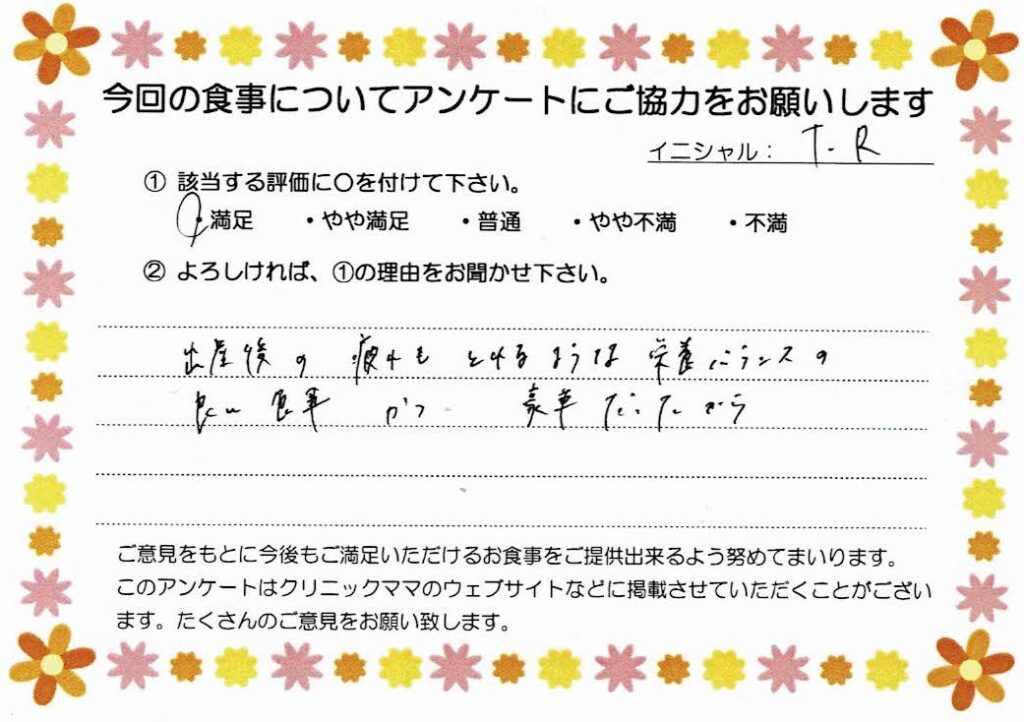 今回の食事についてアンケートにご協力をお願いします
イニシャル： T-R
① 該当する評価に〇を付けて下さい。
・満足 ・やや満足 ・普通 ・やや不満 ・不満
② よろしければ、①の理由をお聞かせ下さい。
出産後の疲れもとれるような栄養バランスの
良い食事かつ豪華だったから
ご意見をもとに今後もご満足いただけるお食事をご提供出来るよう努めてまいります。
このアンケートはクリニックママのウェブサイトなどに掲載させていただくことがござい
ます。たくさんのご意見をお願い致します。